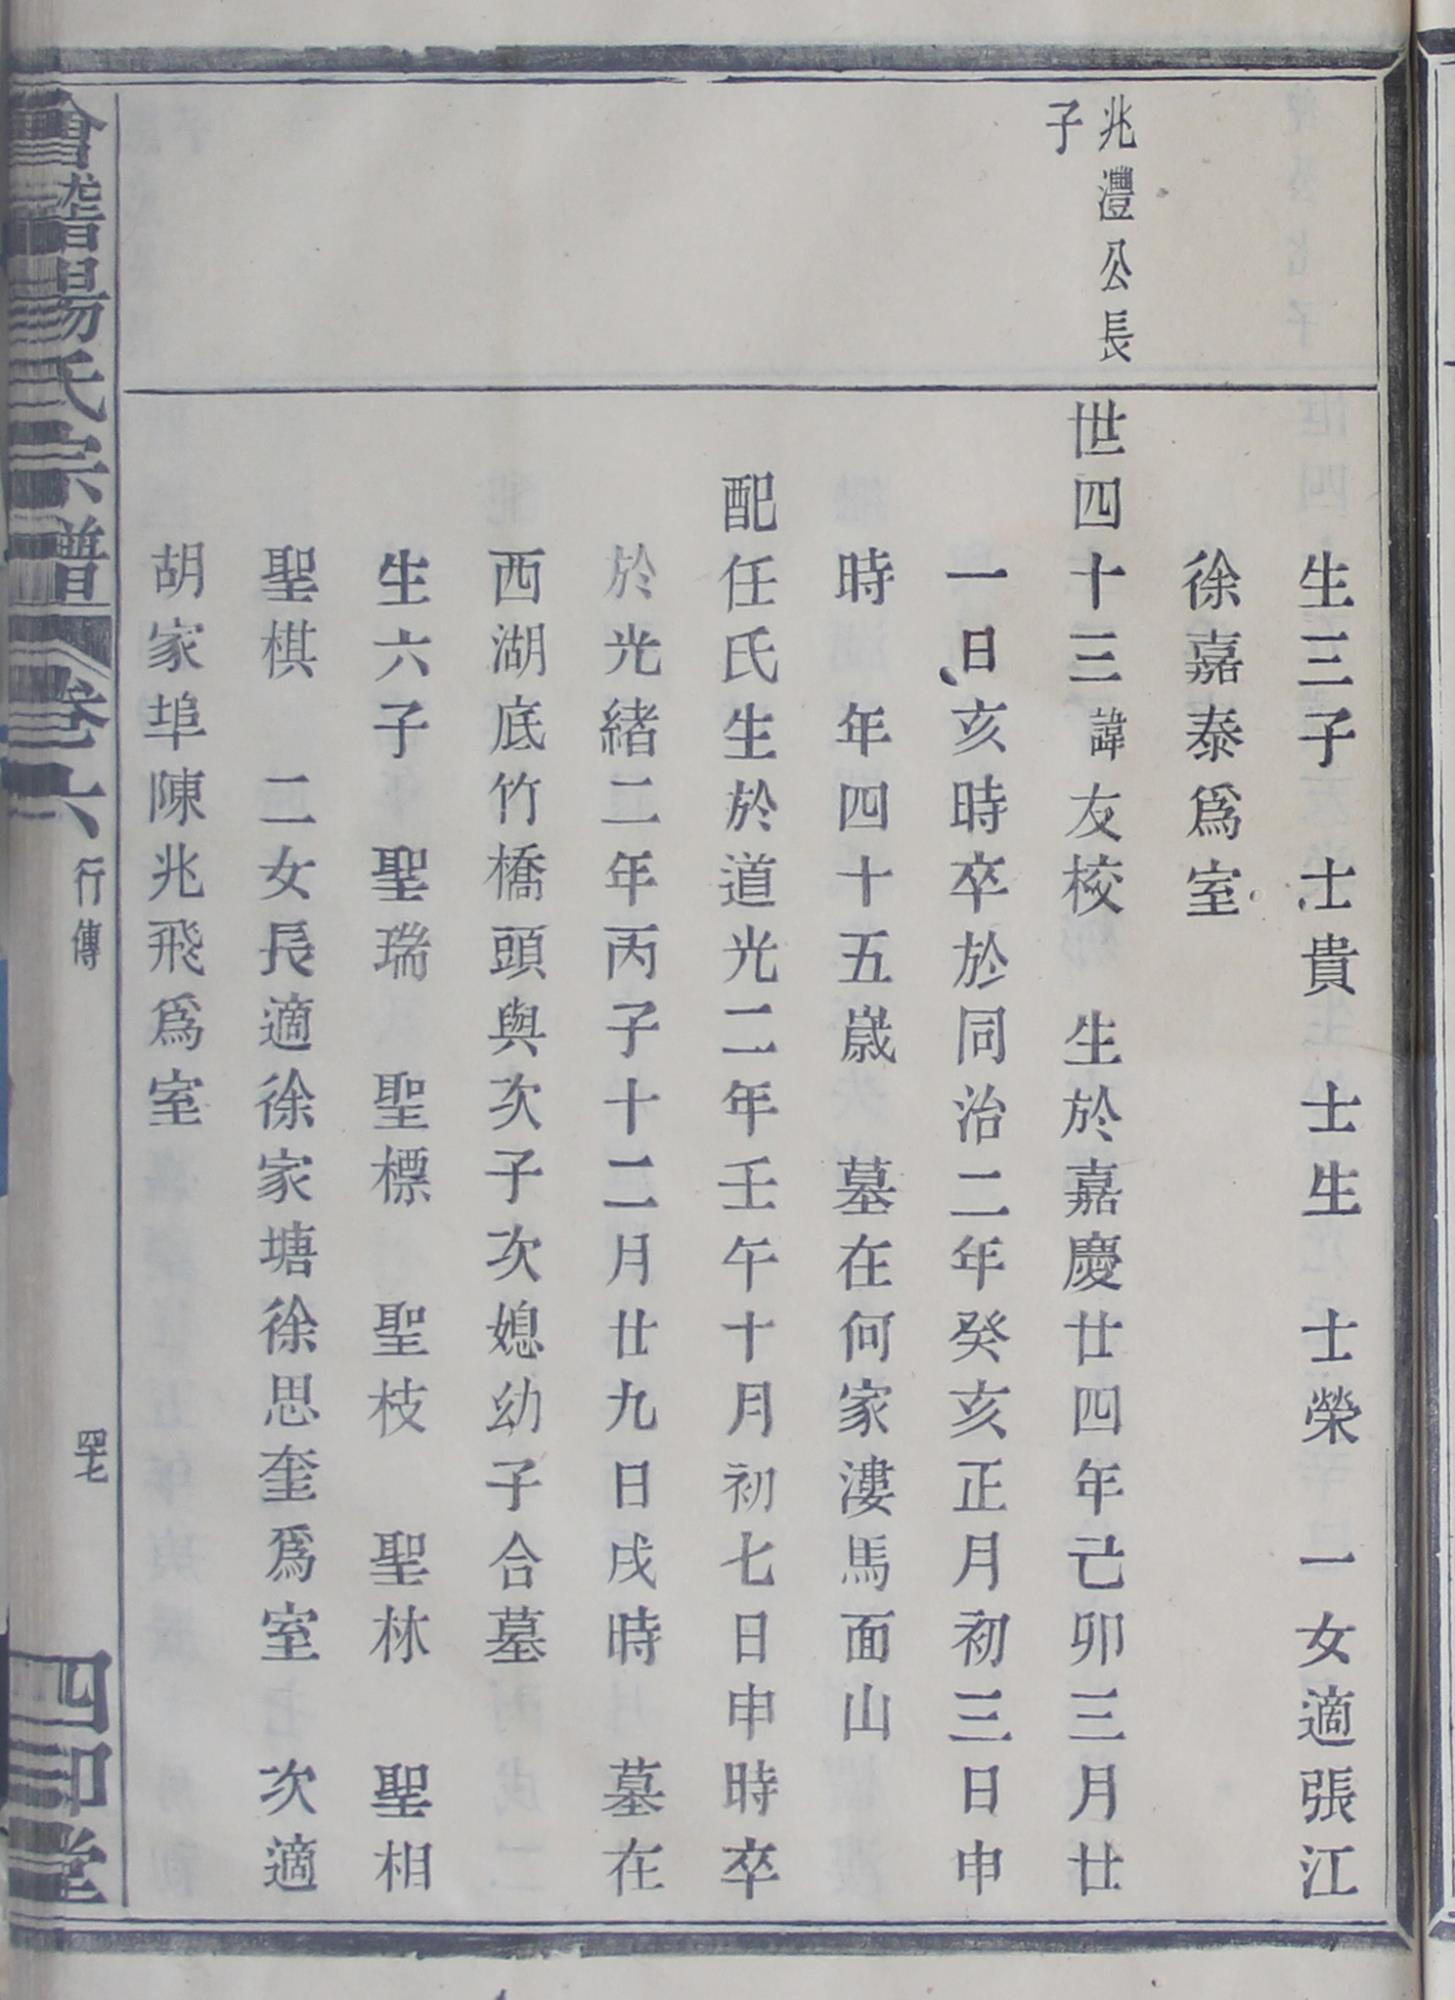 生三子　士貴　士生　士榮　一女適張江
徐嘉泰爲室
兆灃公長
子
世四十三諱友校　生於嘉慶廿四年己卯三月廿
一日亥時卒於同治二年癸亥正月初三日申
時　年四十五歲　墓在何家漊馬面山
配任氏生於道光二年壬午十月初七日申時卒
於光緒二年丙子十二月廿九日戌時　墓在
西湖底竹橋頭與次子次媳幼子合墓
生六子　聖瑞　聖標　聖枝　聖林　聖相
聖棋　二女長適徐家塘徐思奎爲室　次適
胡家埠陳兆飛爲室
會稽陽氏宗譜　卷六　行傳　四七　四印堂